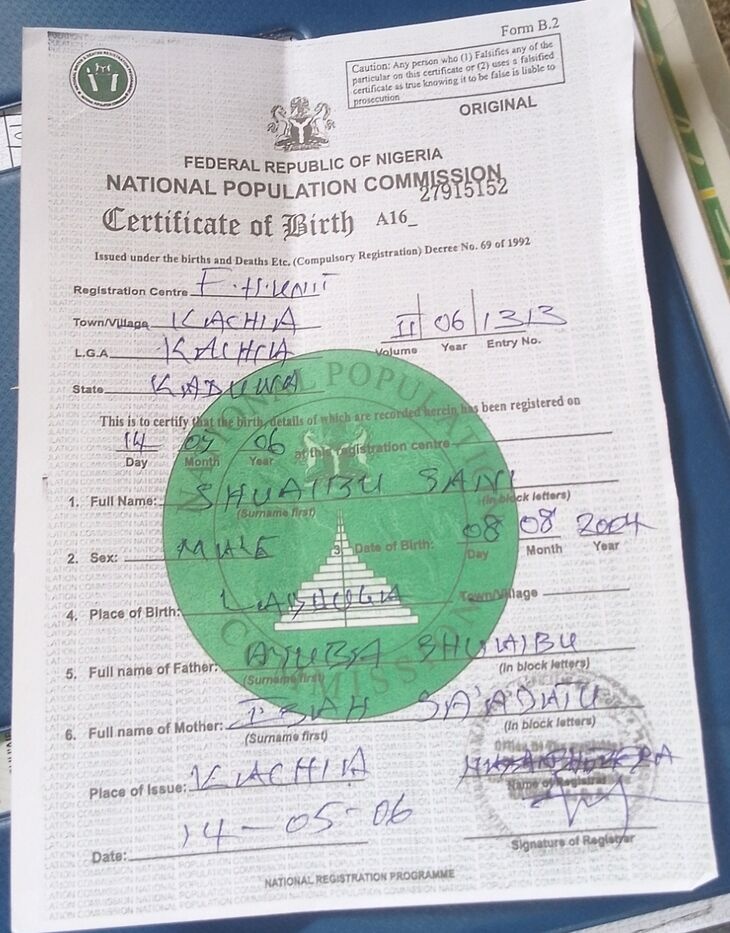 Form B.2
Caution: Any person who (1) Falsifies any of the
particular on this certificate or (2) uses a falsified
certificate as true knowing it to be false is liable to
prosecution
ORIGINAL
FEDERAL REPUBLIC OF NIGERIA
NATIONAL POPULATION COMMISSION
27915152
Certificate of Birth A16_
Issued under the births and Deaths Etc. (Compulsory Registration) Decree No. 69 of 1992
Registration Centre
Town/Village KACHIA
II 06 1313
Volume Year Entry No.
L.G.A. KACHIA
State KADUNA
This is to certify that the birth, details of which are recorded herein has been registered on
14 05 06 at this registration centre
Day Month Year
1. Full Name: SHUAIBU SANI
(Surname first) (In block letters)
2. Sex: MALE 3. Date of Birth: 08 08 2004
Day Month Year
4. Place of Birth: Town/Village
5. Full name of Father: AYUBA SHUAIBU
(Surname first) (In block letters)
6. Full name of Mother: SA'ADATU
(Surname first) (In block letters)
Place of Issue: KACHIA
Name of Registrar
Date: 14-05-06
Signature of Registrar
NATIONAL REGISTRATION PROGRAMME